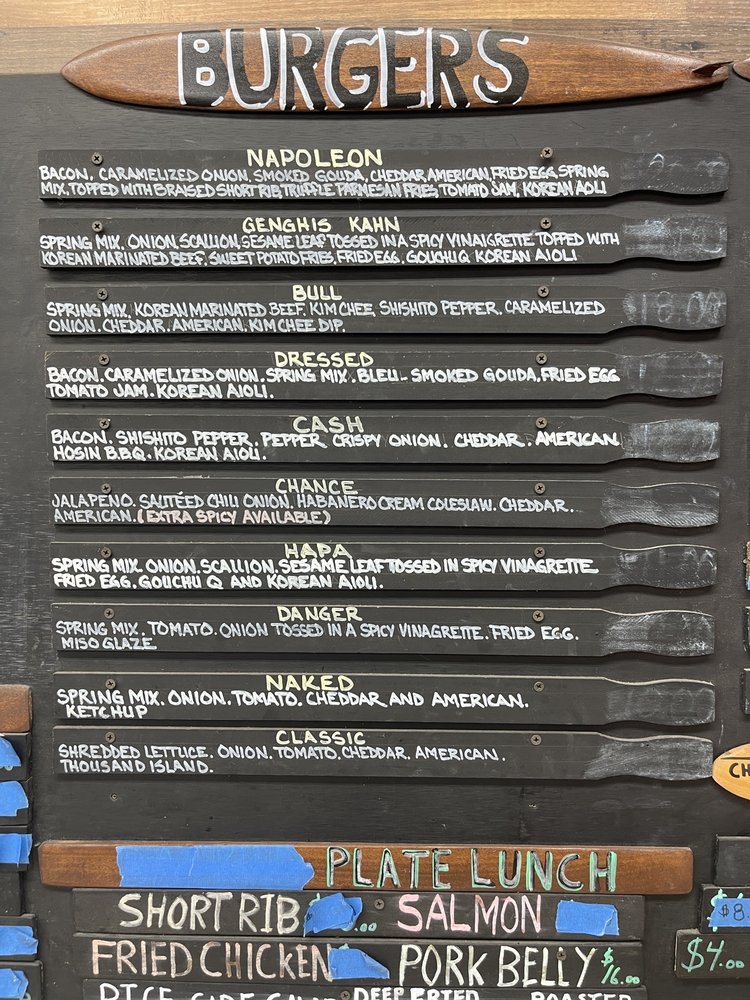 BURGERS
NAPOLEON
BACON, CARAMELIZED ONION, SMOKED GOUDA, CHEDDAR, AMERICAN, FRIED EGG, SPRING
MIX, TOPPED WITH BRAISED SHORT RIB, TRUFFLE PARMESAN FRIES, TOMATO JAM, KOREAN AOLI
GENGHIS KAHN
SPRING MIX. ONION, SCALLION, SESAME LEAF TOSSED IN A SPICY VINAIGRETTE TOPPED WITH
KOREAN MARINATED BEEF. SWEET POTATO FRIES, FRIED EGG. GOUCHU Q KOREAN AIOLI
BULL
SPRING MIX, KOREAN MARINATED BEEF, KIM CHEE, SHISHITO PEPPER, CARAMELIZED
ONION. CHEDDAR. AMERICAN. KIM CHEE DIP.
$18.00
DRESSED
BACON. CARAMELIZED ONION. SPRING MIX. BLEU - SMOKED GOUDA. FRIED EGG
TOMATO JAM. KOREAN AIOLI.
CASH
BACON. SHISHITO PEPPER. PEPPER CRISPY ONION. CHEDDAR. AMERICAN
HOSIN B.B.Q. KOREAN AIOLI.
CHANCE
JALAPENO. SAUTÉED CHILI ONION. HABANERO CREAM COLESLAW. CHEDDAR.
AMERICAN. (EXTRA SPICY AVAILABLE)
HAPA
SPRING MIX. ONION. SCALLION. SESAME LEAF TOSSED IN SPICY VINAGRETTE
FRIED EGG. GOUCHU Q AND KOREAN AIOLI.
DANGER
SPRING MIX. TOMATO. ONION TOSSED IN A SPICY VINAGRETTE. FRIED EGG.
MISO GLAZE
NAKED
SPRING MIX. ONION. TOMATO. CHEDDAR AND AMERICAN.
KETCHUP
CLASSIC
SHREDDED LETTUCE. ONION. TOMATO. CHEDDAR. AMERICAN.
THOUSAND ISLAND.
CH
PLATE LUNCH
SHORT RIB .00 SALMON
$8.
FRIED CHICKEN PORK BELLY $16.00
$4.00
RICE SIDE DEEP FRIED ROASTED